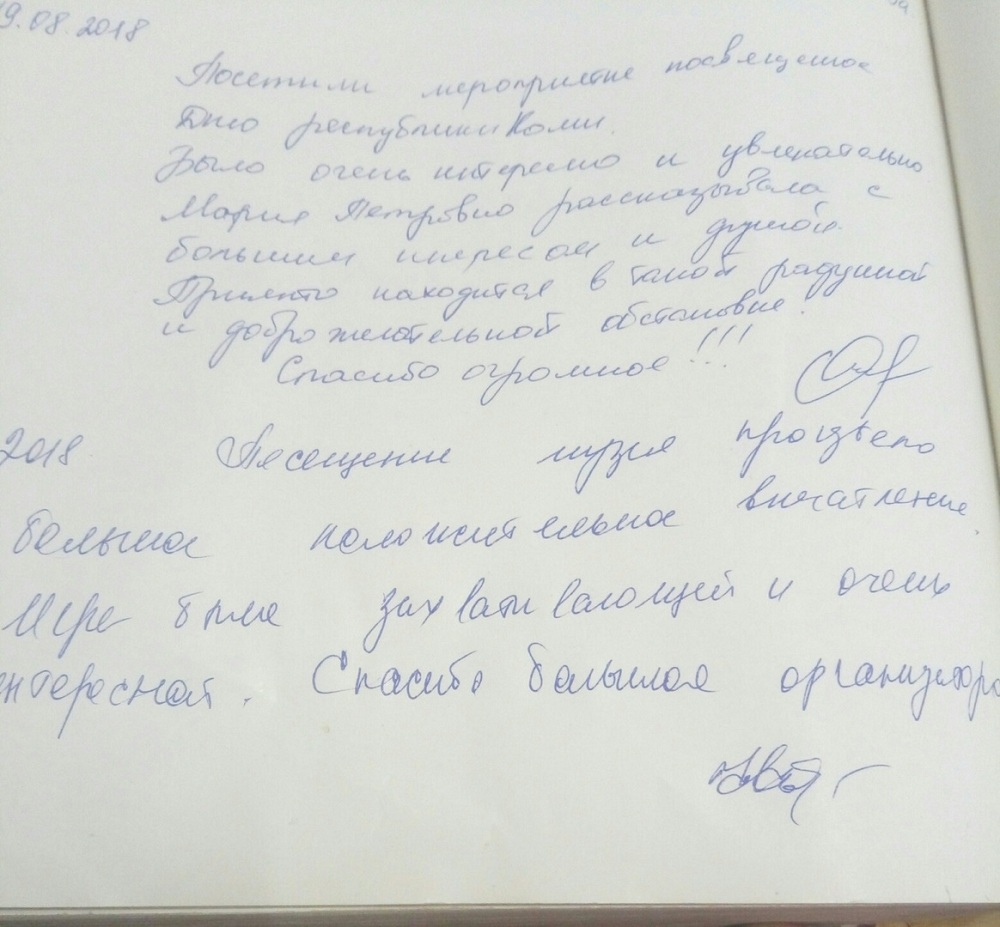 19.08.2018
Посетили мероприятие посвященное
Дню республики Коми.
Было очень интересно и увлекательно
Мария Петровно рассказывала с
большим интересом и душой.
Приятно находится в такой радушной
и доброжелательной обстановке!
Спасибо огромное!!!
2018 Посещение музея произвело
большое положительное впечатление.
Игра была захватывающей и очень
интересной. Спасибо большое организаторо